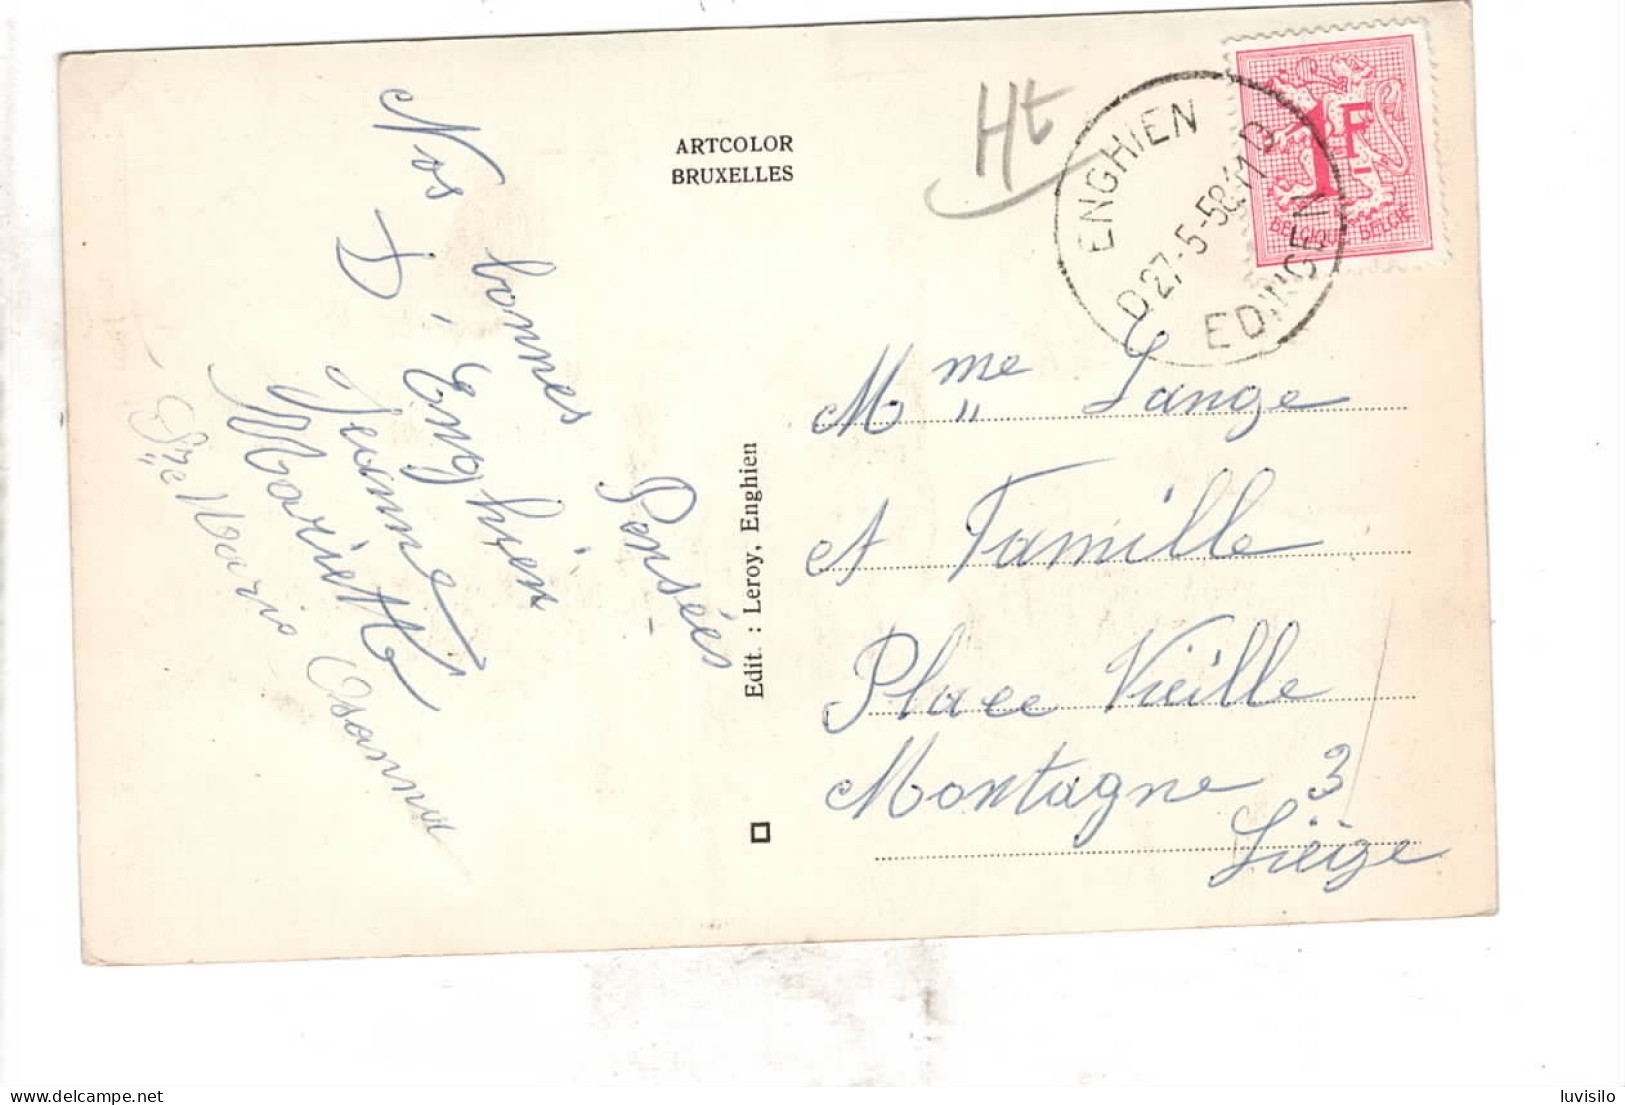 Nos bonnes Pensées
D'Enghien
Jeanne
Mariette
Sr Maria Osanna
ARTCOLOR
BRUXELLES
Edit. : Leroy, Enghien
Ht
ENGHIEN
D 27-5-58 11 D
EDINGEN
1F
BELGIQUE BELGIE
Mme Lange
A Famille
Place Vieille
Montagne 3
Liège
delcampe.net
luvisilo